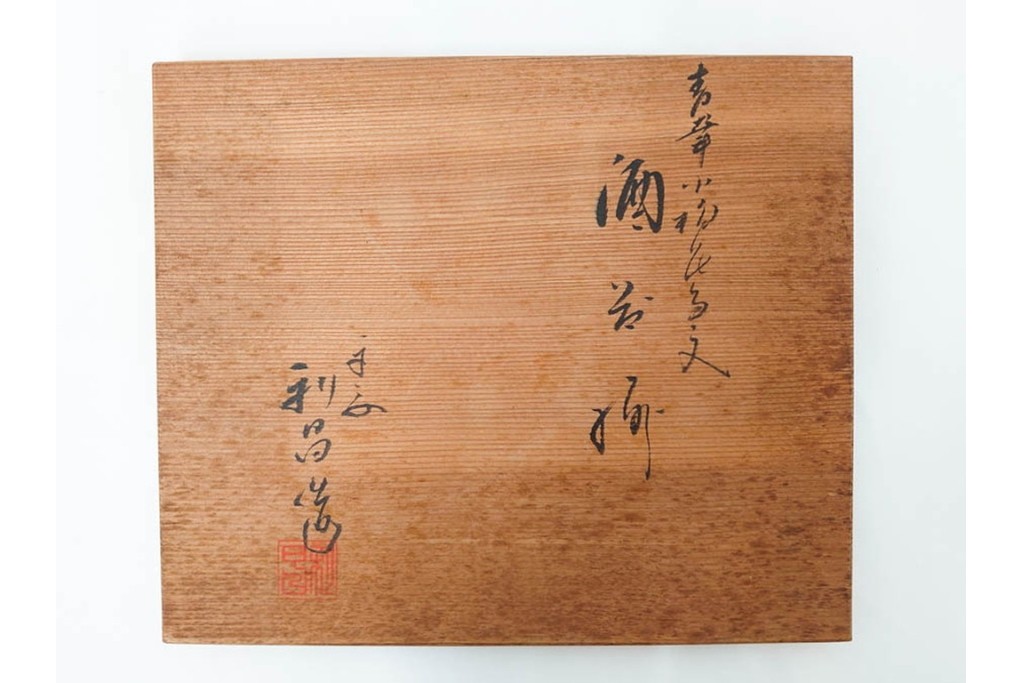 青華小花鳥文
酒器揃
平安
利昌造
利昌